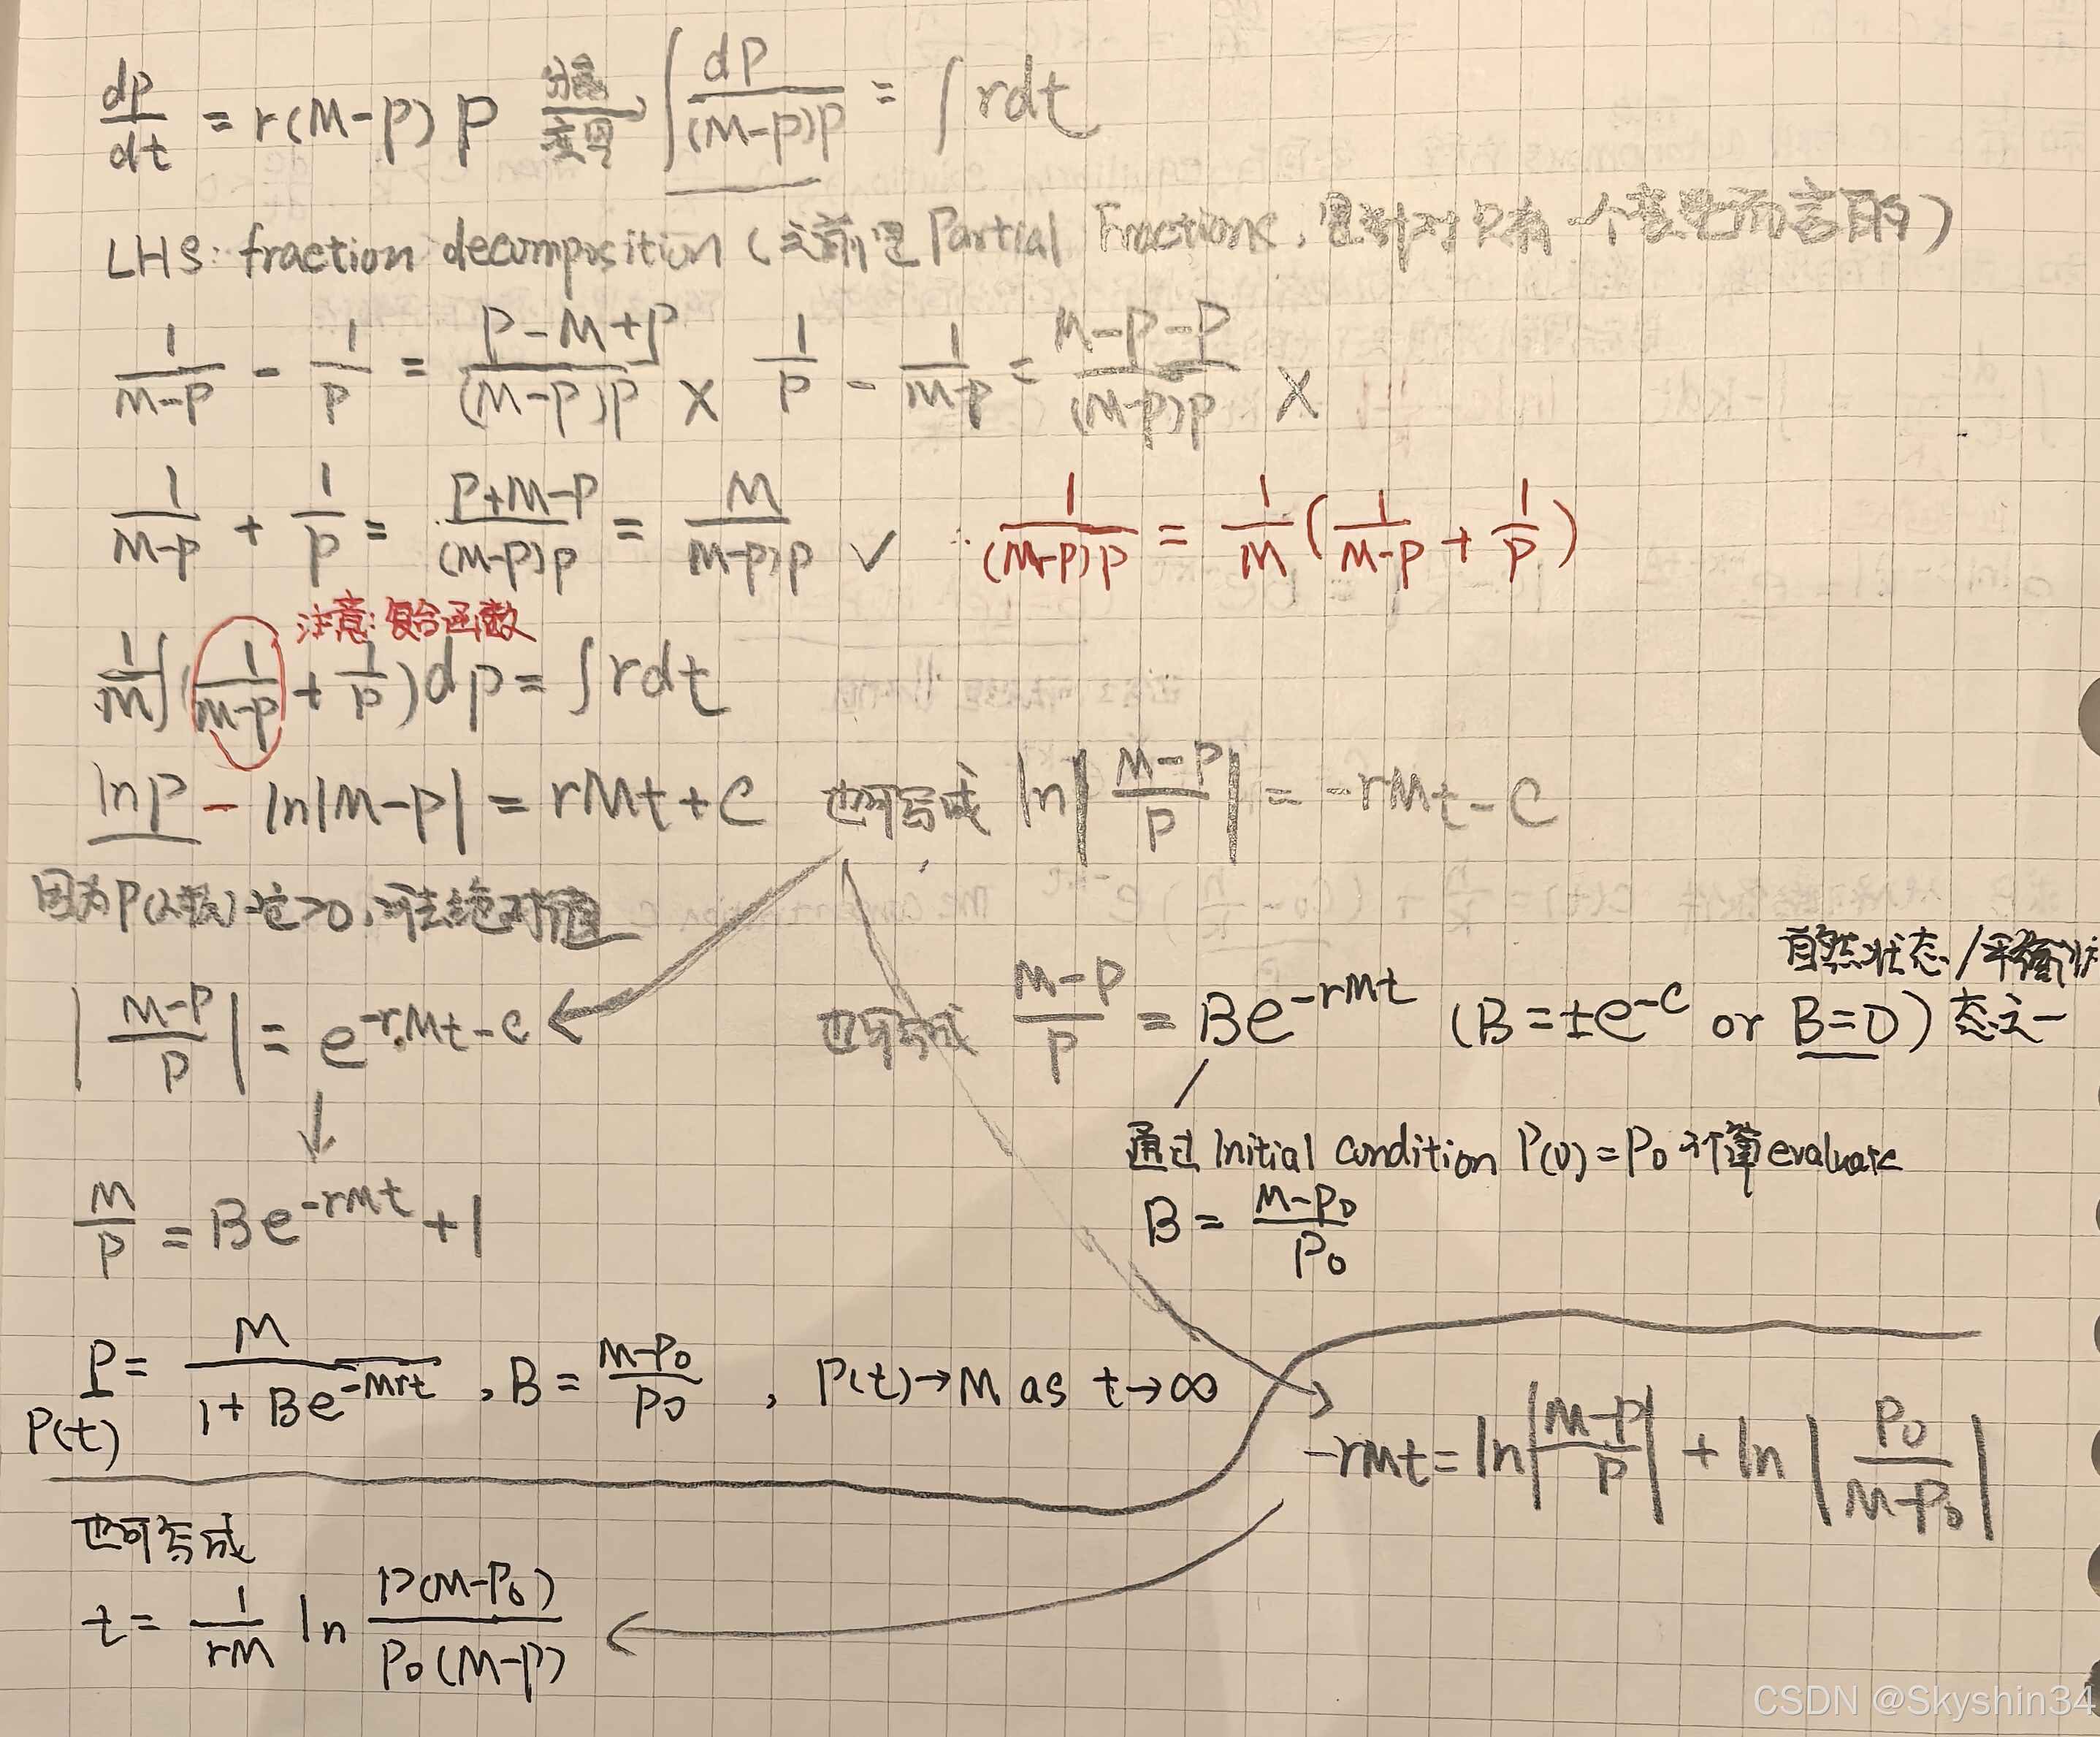 dp/dt = r(M-p) P 分离变量 ∫ dP/((M-p)P) = ∫ rdt
LHS: fraction decomposition (之前是 Partial Fractions, 是针对只有一个变量而言的)
1/(M-P) - 1/P = (P-M+P)/((M-P)P) × 1/P - 1/(M-P) = (M-P-P)/((M-P)P) ×
1/(M-P) + 1/P = (P+M-P)/((M-P)P) = M/(M-P)P ✓ ∴ 1/((M-P)P) = 1/M (1/(M-P) + 1/P)
注意:复合函数
1/M ∫ (1/(M-P) + 1/P) dp = ∫ rdt
lnp - ln|M-P| = rMt + C 也可写成 ln|(M-P)/P| = -rMt - C
因为P(人数)一定>0,可去绝对值
|(M-P)/P| = e^(-rMt-C) 也可写成 (M-P)/P = Be^(-rMt) (B=±e^(-C) or B=0) 自然状态/平衡状态之一
通过 Initial condition P(0)=P₀ 计算 evaluate
M/P = Be^(-rMt) + 1 B = (M-P₀)/P₀
P= P(t) M/(1+Be^(-Mrt)), B = (M-P₀)/P₀, P(t)→M as t→∞
-rMt = ln|(M-P)/P| + ln|P₀/(M-P₀)|
也可写成
t = 1/(rM) ln P(M-P₀)/(P₀(M-P))
CSDN @Skyshin34